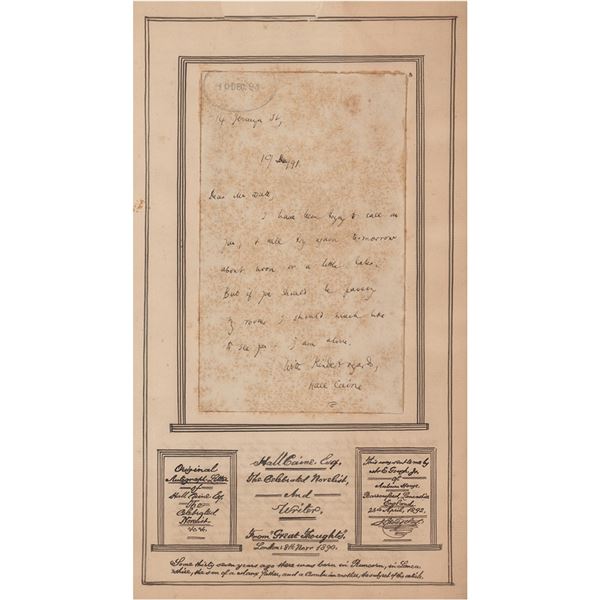 10 DEC. 91
14 Jermyn St,
19 91.
Dear Mr Watt,
I have been trying to call on
you, & shall try again tomorrow
about noon or a little later.
But if you should be passing
my rooms I should much like
to see you. I am alone.
With kindest regards,
Hall Caine
Original
Autograph Letter
of
Hall Caine Esq.
The
Celebrated
Novelist.
&c. &c.
Hall Caine. Esq.
The Celebrated Novelist,
And
Writer.
From "Great Thoughts".
London: 8th Novr 1890.
This was sent to me by
Gough. Jr.
of
House.
Lancashire
England.
April, 1892.
Some thirty seven years ago there was born in Runcorn, in Lanca
shire, the son of a Manx father, and a Cumbrian mother, the subject of this article.